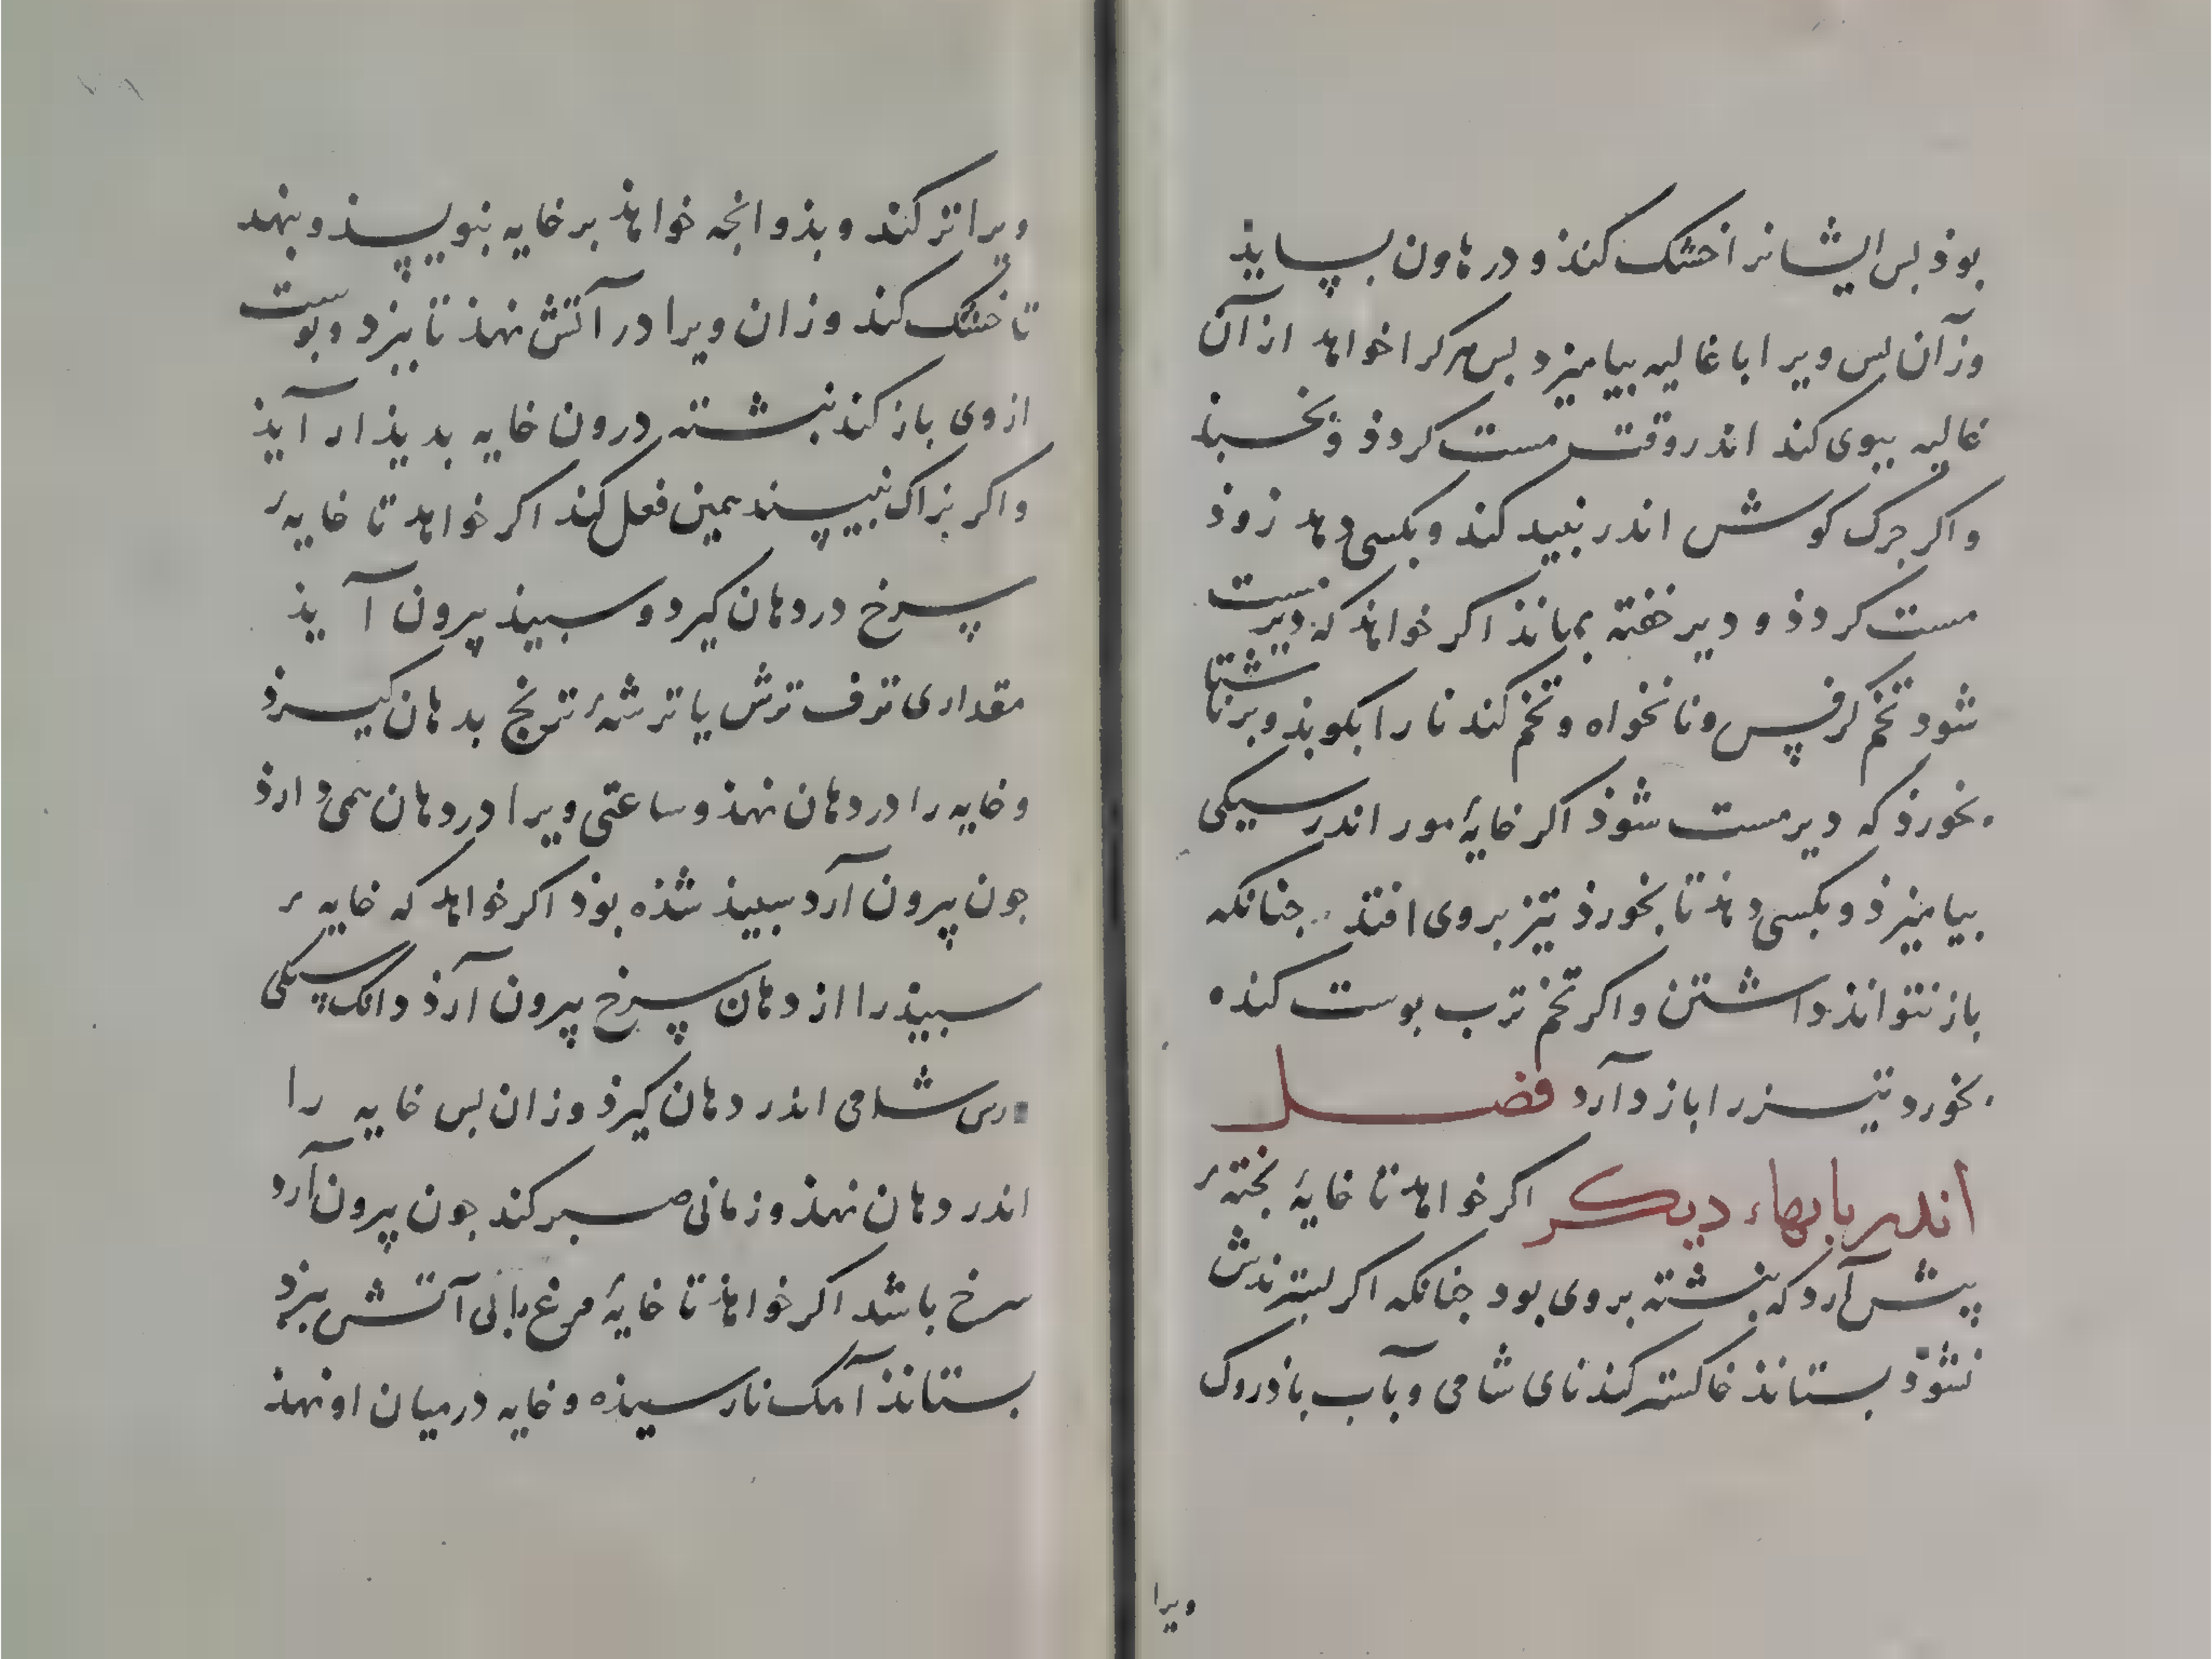 بوذ بس ایشانرا خشک کنذ و در هاون بساید
وز آن بس ویرا با غالیه بیامیزد بس هر کرا خواهد از آن
غالیه ببوی کند اندر وقت مست کردذ و بخسبذ
و اکر جرک کوش اندر نبید کند و بکسی دهد زوذ
مست کردذ و دیر خفته بماند اکر خواهد که دیر مست
شود تخم کرفس و نانخواه و تخم کندنا را بکوبد و بر ناشتا
بخورذ که دیر مست شوذ اکر خایهٔ مور اندر سیکی
بیامیزذ و بکسی دهد تا بخورذ تیز بروی افتذ جنانکه
باز نتواند داشتن و اکر تخم ترب بوست کنده
بخورد تیز را باز دارد فصل
اندر بابهاء دیکر اکر خواهد تا خایهٔ بخته
پیش آرد که نبشته بروی بود جنانکه اکر بسترندش
نشوذ بستاند خاکستر کند نای شامی و بآب باذروک
ویرا
ویرا تر کند و بذو انجه خواهد بر خایه بنویسذ و بنهد
تا خشک کند وزان ویرا در آتش نهذ تا ببزد و بوست
از وی باز کند نبشته درون خایه بدیذار آیذ
و اکر بزاک نبیسند همین فعل کند اکر خواهد تا خایه
سرخ در دهان کیرد و سبیذ بیرون آیذ
مقداری ترف ترش یا ترشهٔ ترنج بدهان کیرذ
و خایه را در دهان نهذ و ساعتی ویرا در دهان همی دارذ
جون بیرون آرد سبیذ شذه بوذ اکر خواهد که خایه
سبیذ را از دهان سرخ بیرون آرذ دانک سکی
شامی اندر دهان کیرذ وزان بس خایه را
اندر دهان نهذ و زمانی صبر کند جون بیرون آرد
سرخ باشد اکر خواهذ تا خایهٔ مرغ بابی آتش ببزد
بستاند آهک نارسیذه و خایه در میان او نهذ